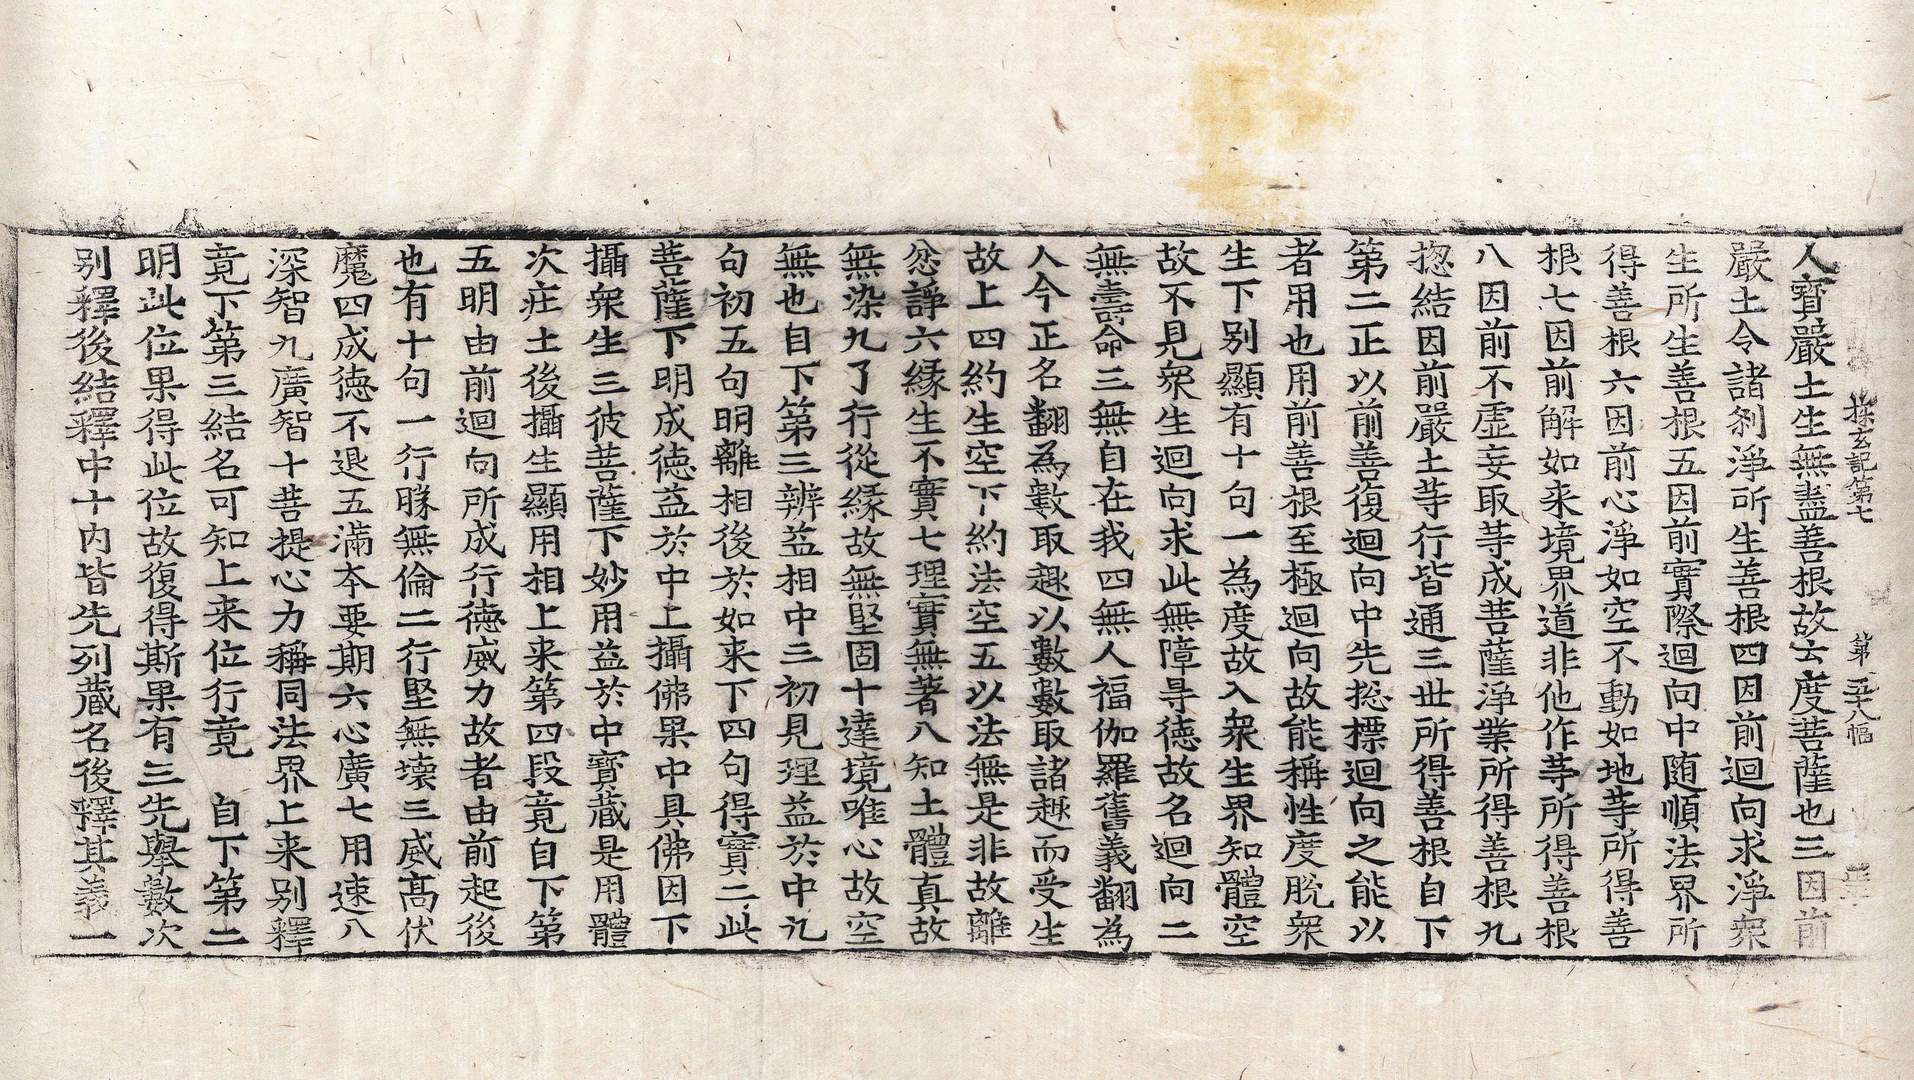 探玄記第七 第三十八幅
人寶嚴土生無盡善根故云度菩薩也三因前
嚴土令諸刹淨所生善根四因前迴向求淨衆
生所生善根五因前實際迴向中随順法界所
得善根六因前心淨如空不動如地䓁所得善
根七因前解如来境界道非他作䓁所得善根
八因前不虛妄取䓁成菩薩淨業所得善根九
揔結因前嚴土䓁行皆通三世所得善根自下
第二正以前善復迴向中先揔摽迴向之能以
者用也用前善根至極迴向故能稱性度脫衆
生下别顯有十句一為度故入衆生界知體空
故不見衆生迴向求此無障㝵德故名迴向二
無壽命三無自在我四無人福伽羅舊義翻為
人今正名翻為數取趣以數數取諸趣而受生
故上四約生空下約法空五以法無是非故離
忿諍六縁生不實七理實無著八知土體真故
無染九了行從縁故無堅固十達境唯心故空
無也自下第三辨益相中二初見理益於中九
句初五句明離相後於如来下四句得寶二此
菩薩下明成德益於中上攝佛果中具佛因下
攝衆生三彼菩薩下妙用益於中寶蔵是用體
次庄土後攝生顯用相上来第四段竟自下第
五明由前迴向所成行德威力故者由前起後
也有十句一行㬺無倫二行堅無壞三威髙伏
魔四成徳不退五滿本要期六心廣七用速八
深智九廣智十菩提心力稱同法界上来别釋
竟下第三結名可知上来位行竟 自下第二
明此位果得此位故復得斯果有三先舉數次
别釋後結釋中十内皆先列蔵名後釋其義一